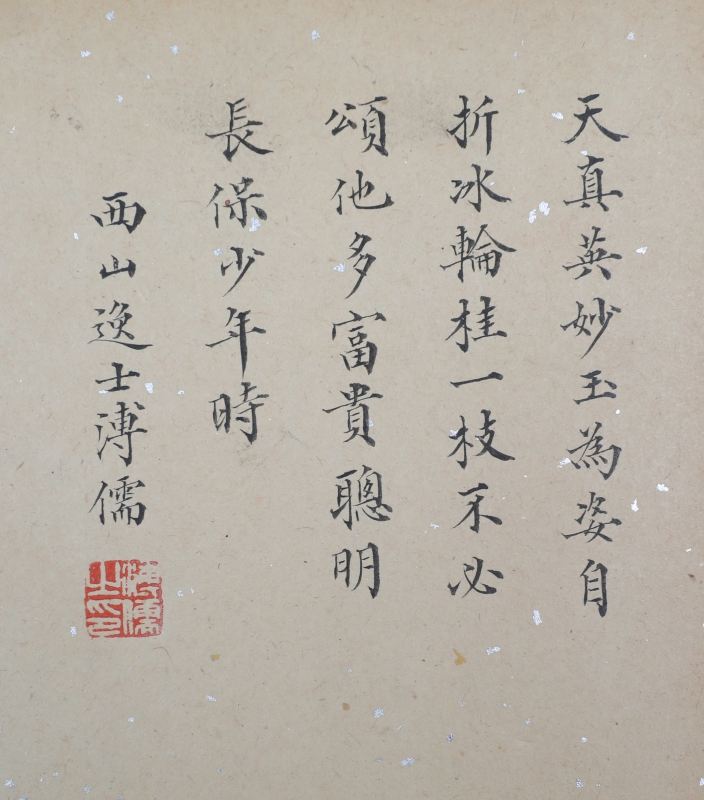 天真英妙玉為姿自
折冰輪桂一枝不必
頌他多富貴聰明
長保少年時
西山逸士溥儒
溥儒之印